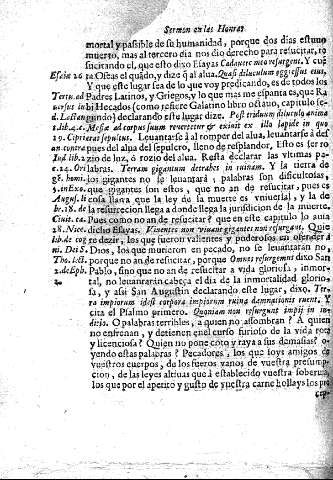 Sermon en las Honras
mortal y passible de su humanidad, porque dos dias estuuo
muerto, mas al tercero dia nos dio derecho para resucitar, re
sucitando el, que esto dixo Esayas Cadauere meo resurgent. Y cuē
Esaiæ 26 ta Osee el quādo, y dize q̄ al alua. Quasi diluculum egressus eius,
Y que este lugar sea de lo que voy predicando, es de todos los
Tertu. ad Padres Latinos, y Griegos, y lo que mas me espanta es, que Ra
uersus in bi Hecados (como refiere Galatino libro octauo, capitulo se-
d. Lactan gundo) declarando este lugar dize. Post triduum diluculo anima
1. lib. 4. c. Messiæ ad corpus suum reuertetur & exiuit ex illa lapide in quo
19. Ciriera sepultus. Leuantarse à al romper del alua, leuantarse à del
an contra pues del alua del sepulcro, lleno de resplandor, Esto es ser ro
Iud. lib. 2 zio de luz, ò rozio del alua. Resta declarar las vltimas pa
c. 24. Ori labras. Terram gigantum detrahes in ruinam. Y la tierra de
gē. hom. los gigantes no se leuantarà, y palabras son dificultosas,
5. in Exo. que gigantes son estos, que no an de resucitar, pues es
Augus. li cosa llara que la ley de la muerte es vniuersal, y la de
br. 18. de la resurreccion llega a donde llega la jurisdicion de la muerte.
Ciuit. ca. Pues como no an de resucitar? que en este capitulo lo auia
28. Nice. dicho Esayas. Viuentes non viuant gigantes non resurgant. Quie
lib. de cog re dezir, los que fueron valientes y poderosos en ofender à
ni. Dei S. Dios, los que murieron en pecado, no se leuantaràn no
Tho. lect. porque no an de resucitar, porque Omnes resurgemus dixo San
2. de Eph. Pablo, sino que no an de resucitar a vida gloriosa, inmor-
2. tal, no leuantaràn cabeça el dia de la inmortalidad glorio
sa, y assi San Augustin declarando este lugar, dixo. Ter
ra impiorum idest corpora impiorum ruina damnationis ruent. Y
cita el Psalmo primero. Quoniam non resurgunt impij in iu-
dicio. O palabras terribles, a quien no assombran? A quien
no enfrenan, y detienen el curso furioso de la vida rota
y licenciosa? Quien no pone coto y raya a sus demasias? o-
yendo estas palabras? Pecadores, los que soys amigos de
vuestros cuerpos, de los fueros vanos de vuestra presump-
cion, de las leyes altiuas que à establecido vuestra soberuia,
los que por el apetito y gusto de vuestra carne hollays los pre
cep-